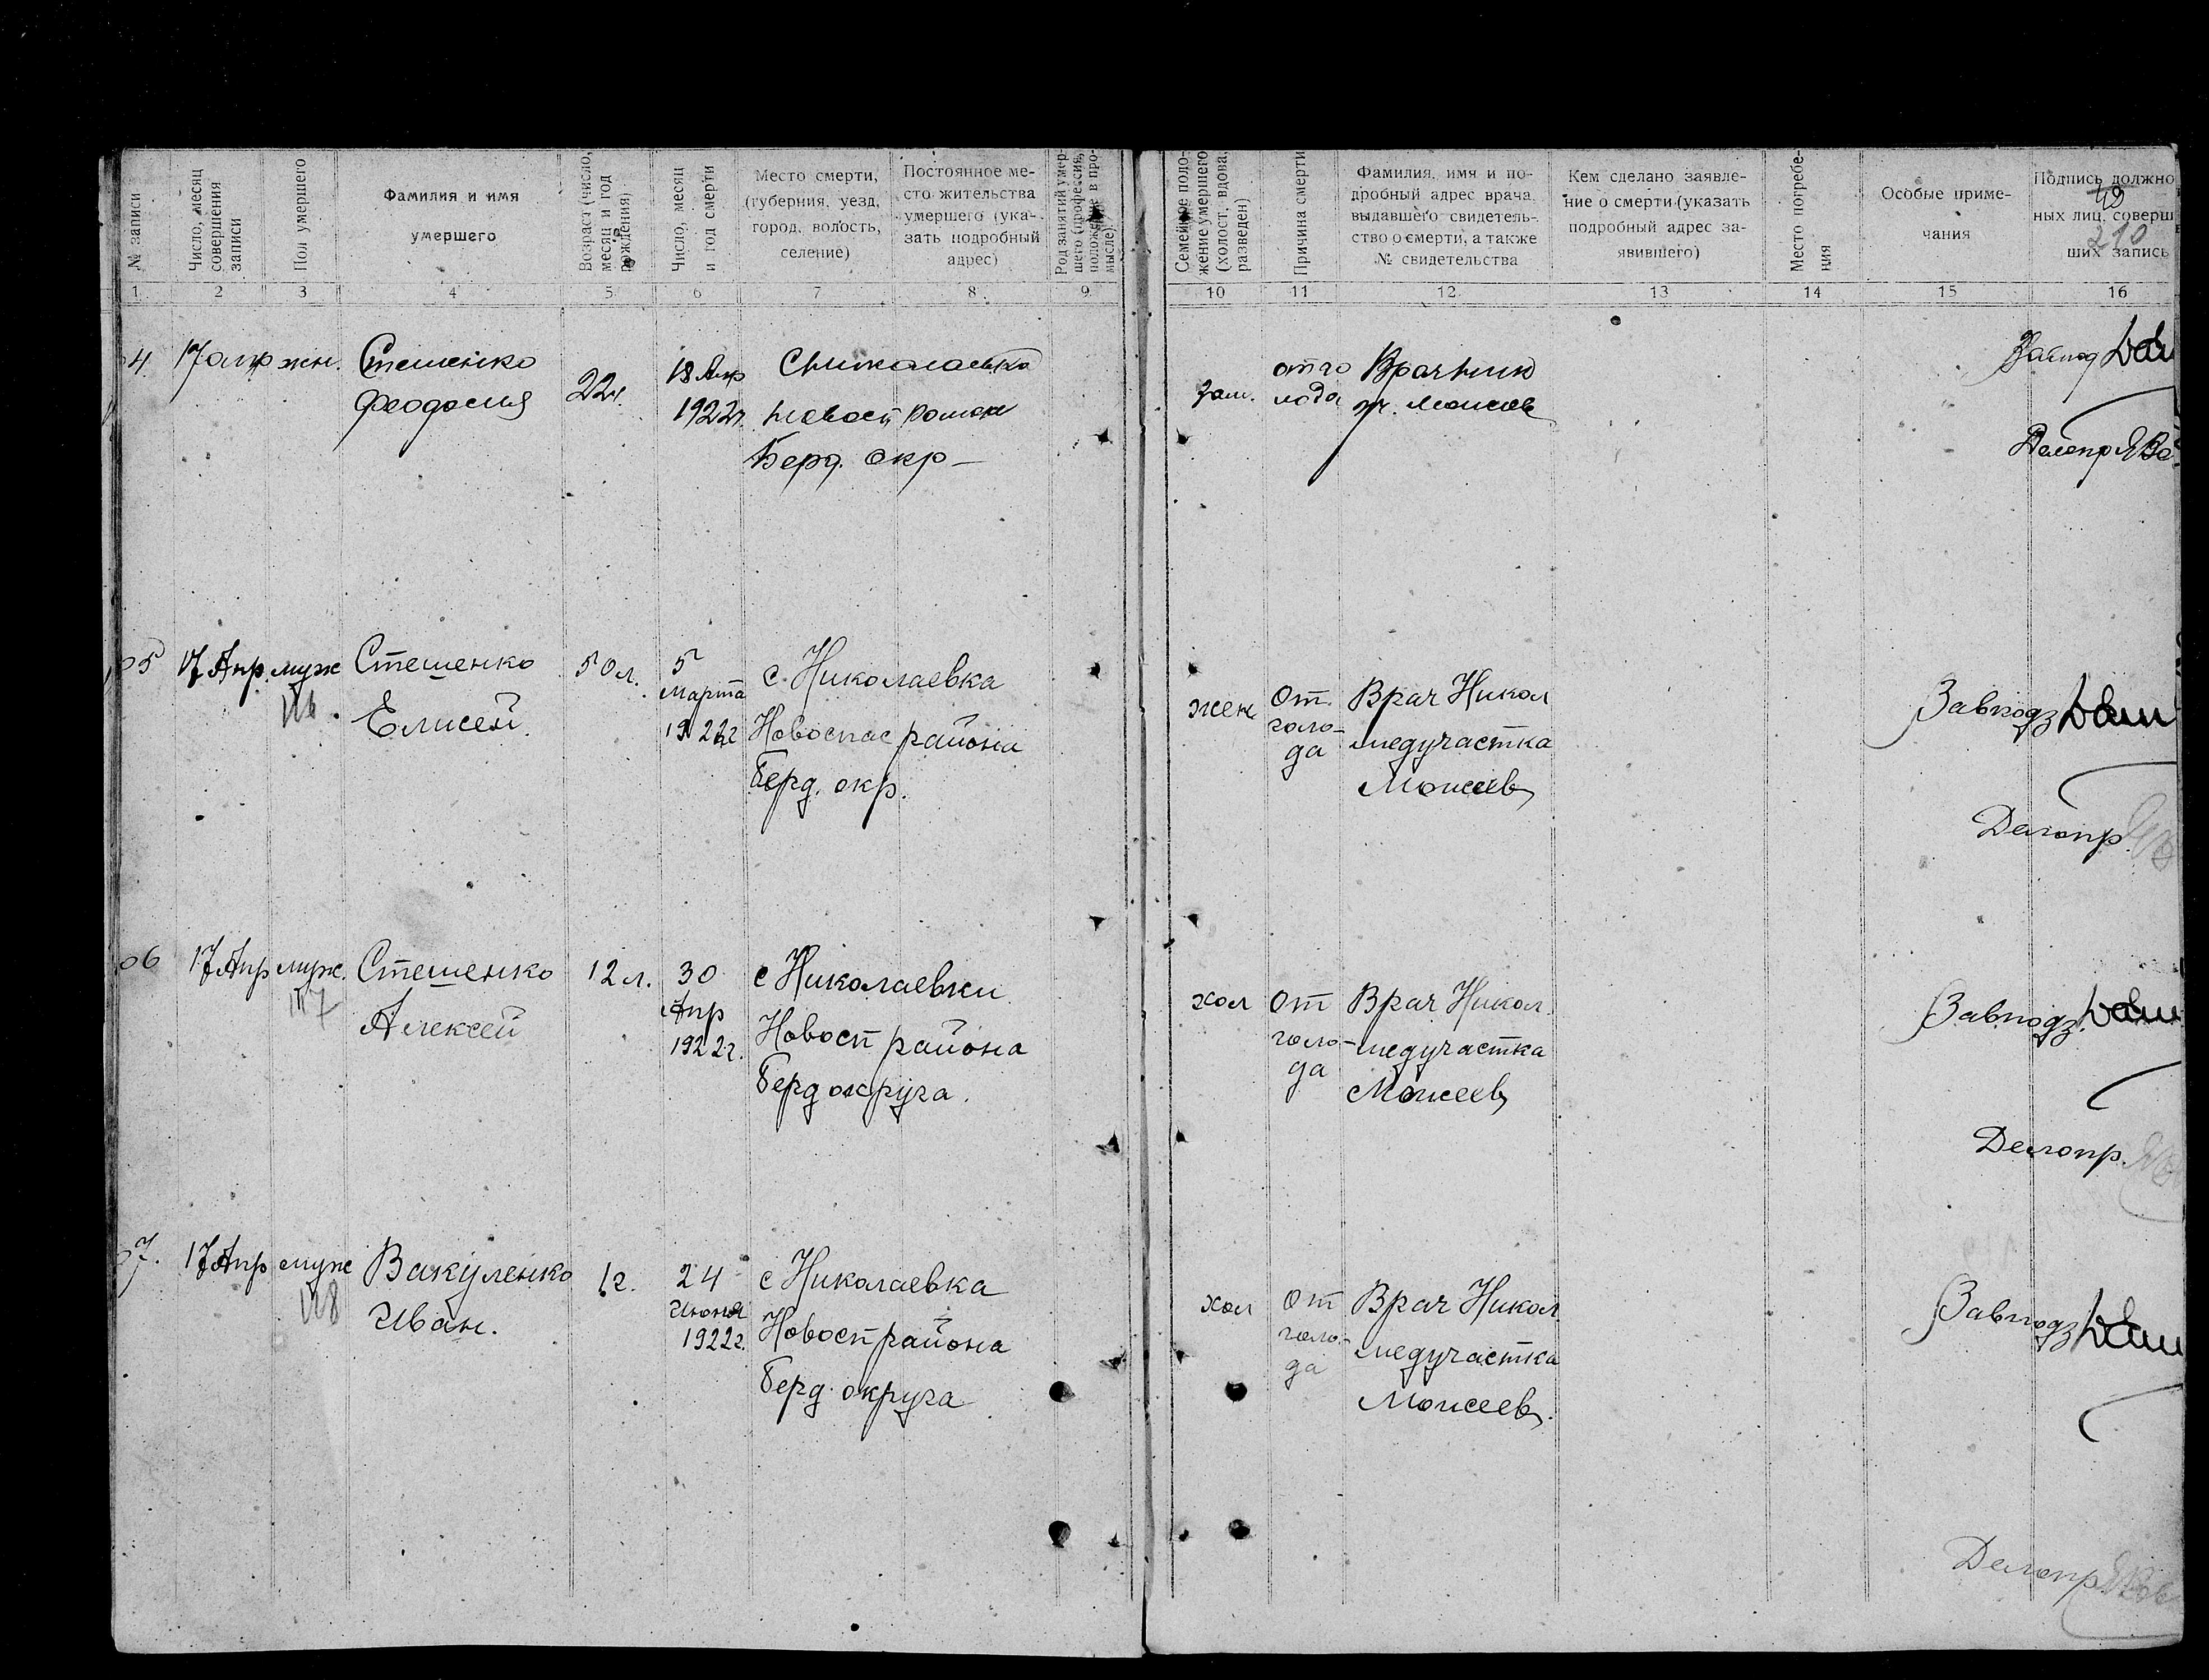 № записи
Число, месяц
совершения
записи
Пол умершего
Фамилия и имя
умершего
Возраст (число,
месяц и год
рождения)
Число, месяц
и год смерти
Место смерти,
(губерния, уезд,
город, волость,
селение)
Постоянное ме-
сто жительства
умершего (ука-
зать подробный
адрес)
Род занятий умер-
шего (профессия,
положение в про-
мысле)
Семейное поло-
жение умершего
(холост, вдова,
разведен)
Причина смерти
Фамилия, имя и по-
дробный адрес врача,
выдавшего свидетель-
ство о смерти, а также
№ свидетельства
Кем сделано заявле-
ние о смерти (указать
подробный адрес за-
явившего)
Место погребе-
ния
Особые приме-
чания
Подпись должно
ных лиц, соверш
ших запись
210
1 2 3 4 5 6 7 8 9 10 11 12 13 14 15 16
04. 17 апр жн. Стешенко
Феодосия
22г.
18 Апр
1922г.
с Николаевка
Новосп района
Берд. окр
зам.
от го
лода
Врач Ник
уч. Моисеев
Завпод
Делопр
05 17 Апр. муж Стешенко
Елисей.
116.
50 л.
5
марта
1922г
с. Николаевка
Новоспас района
Берд. окр.
жен
От
голо-
да
Врач Никол
медучастка
Моисеев
Завподз
Делопр
06 17 Апр муж. Стешенко
Алексей
117
12 л.
30
Апр
1922г.
с Николаевки
Новосп района
Берд округа.
хол
От
голо-
да
Врач Никол.
медучастка
Моисеев
Завподз.
Делопр.
07. 17 Апр муж Вакуленко
Иван.
118
1г.
24
Июня
1922г.
с Николаевка
Новосп района
Берд. округа
хол
От
голо-
да
Врач Никол
медучастка
Моисеев.
Завподз
Делопр